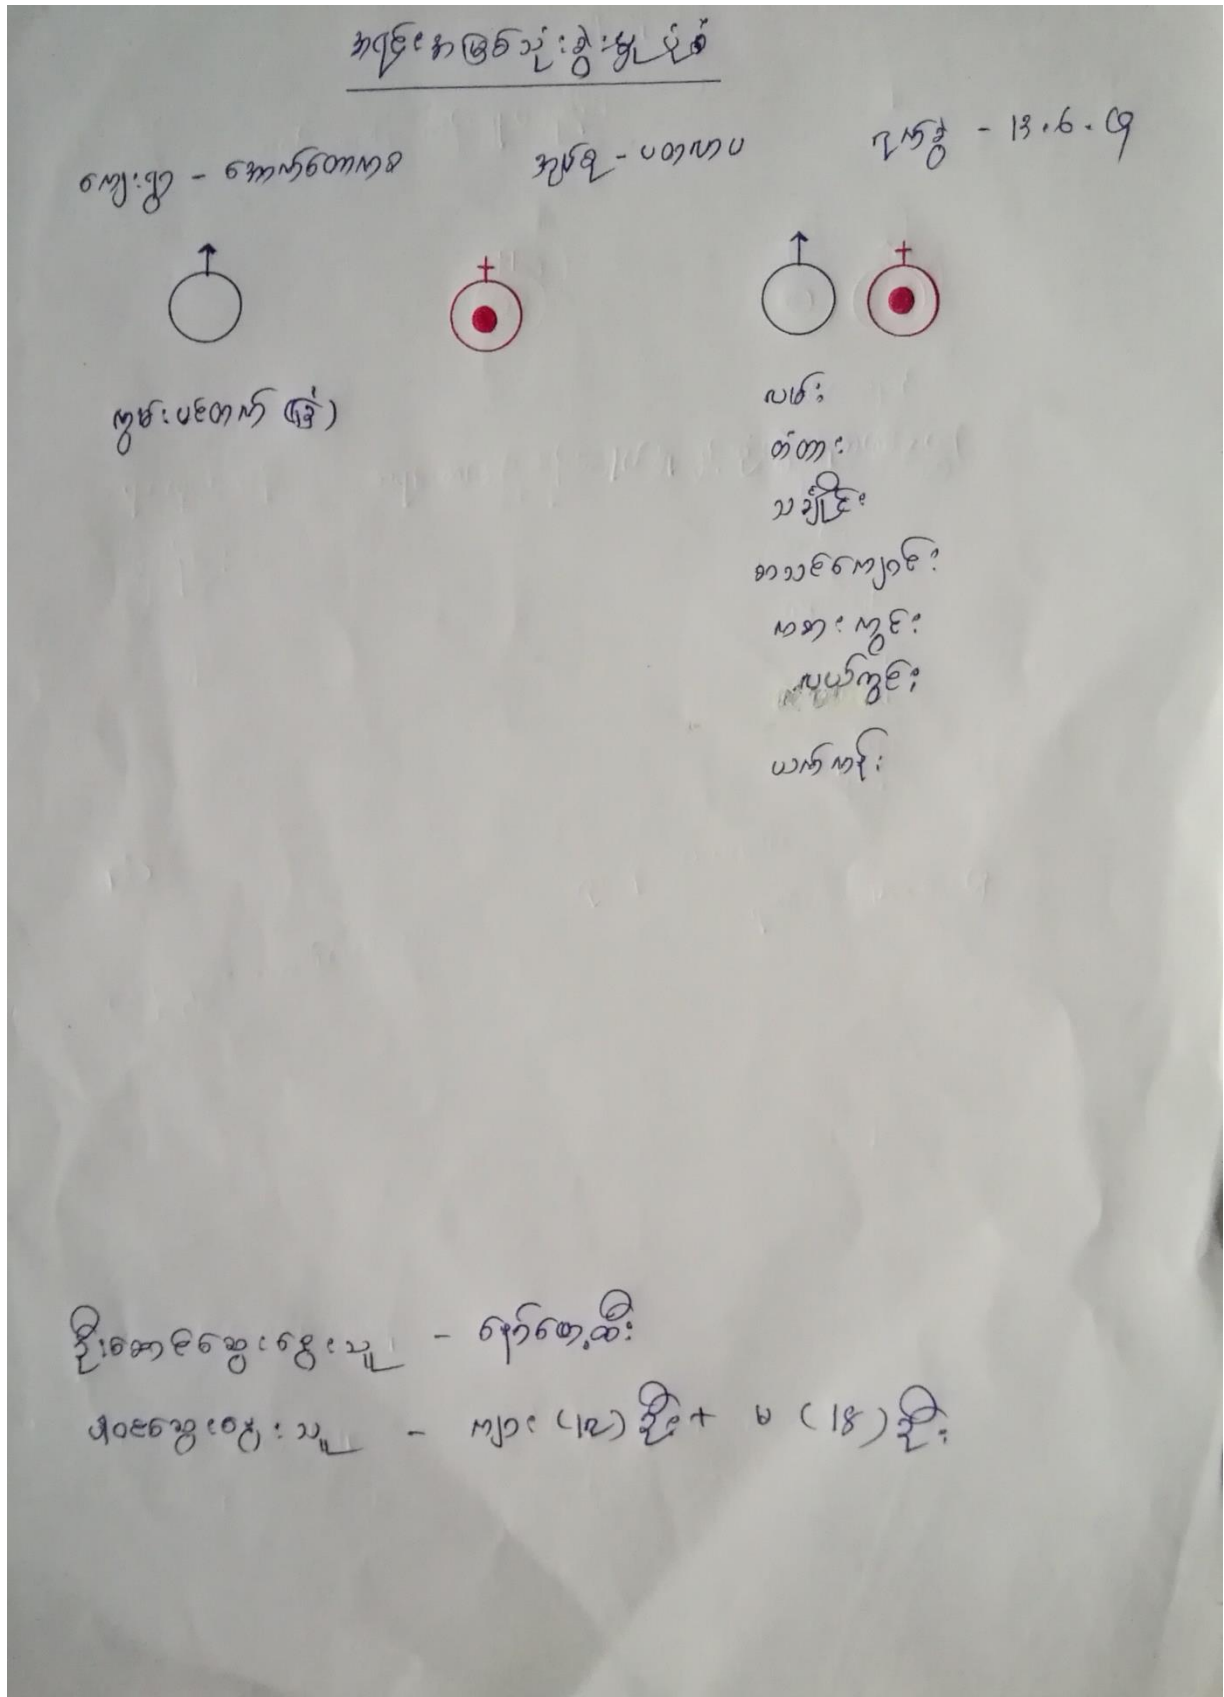 အရင်းအမြစ်သုံးစွဲမှုပုံစံ
ကျေးရွာ - အောက်တောကစ အုပ်စု - ပတလာပ ရက်စွဲ -
ကွမ်းပင်တက် (ခြံ)
လမ်း
တံတား
သင်္ချိုင်း
စာသင်ကျောင်း
ကစားကွင်း
လယ်ကွင်း
ယက်ကန်း
ဦးဆောင်ဆွေးနွေးသူ - နော်တေ့ထီး
ပါဝင်ဆွေးနွေးသူ - ကျား (၊၂) ဦး + မ (၊၄) ဦး